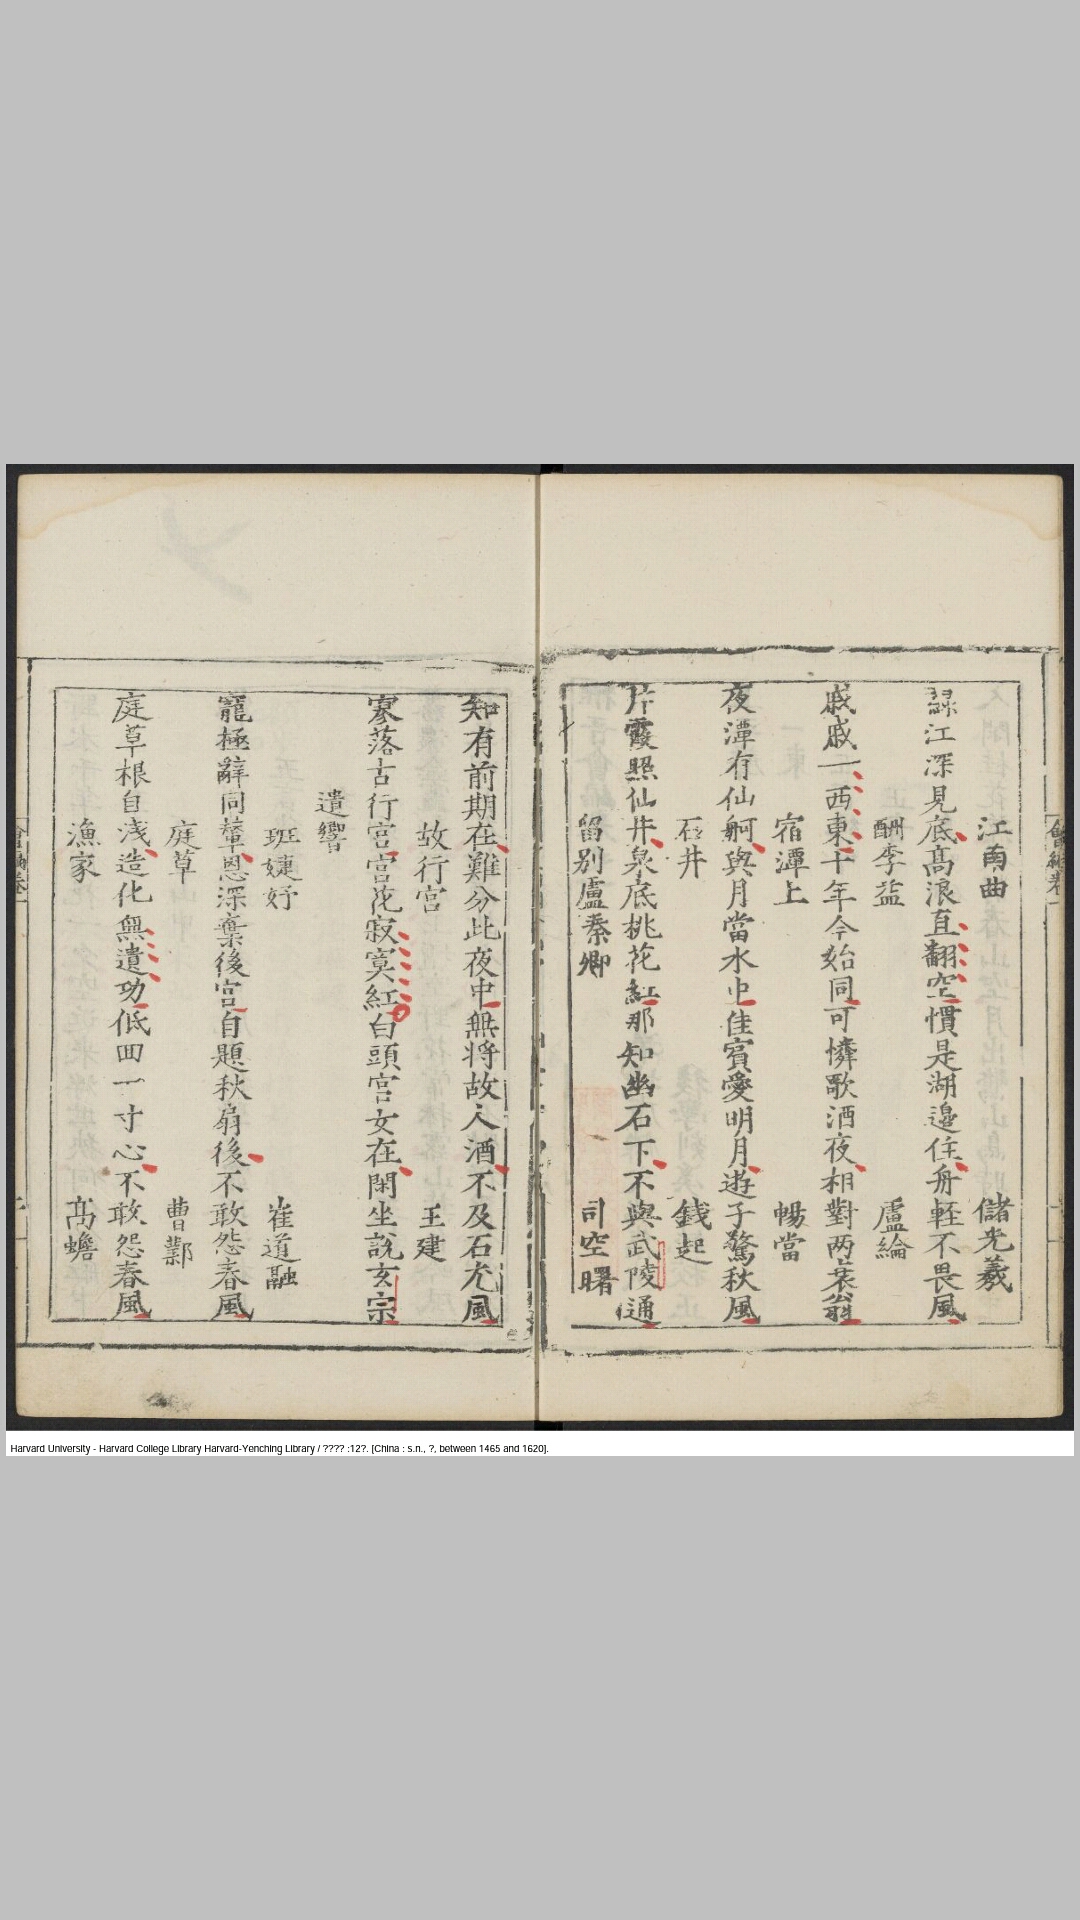 江南曲 儲光羲
綠江深見底髙浪直翻空慣是湖邉住舟輕不畏風
酬李益 盧綸
戚戚一西東十年今始同可憐歌酒夜相對两衰翁
宿潭上 暢當
夜潭有仙舸與月當水中佳賓愛明月遊子驚秋風
石井 錢起
片霞照仙井泉底桃花紅那知幽石下不與武陵通
留別盧秦卿 司空曙
知有前期在難分此夜中無將故人酒不及石尤風
故行宫 王建
寥落古行宫宫花寂寞紅白頭宫女在閑坐說玄宗
遺響
班婕妤 崔道融
寵極辭同輦恩深棄後宫自題秋扇後不敢怨春風
庭草 曹鄴
庭草根自淺造化無遺功低囬一寸心不敢怨春風
漁家 髙蟾
Harvard University - Harvard College Library Harvard-Yenching Library / ???? :12?. [China : s.n., ?, between 1465 and 1620].